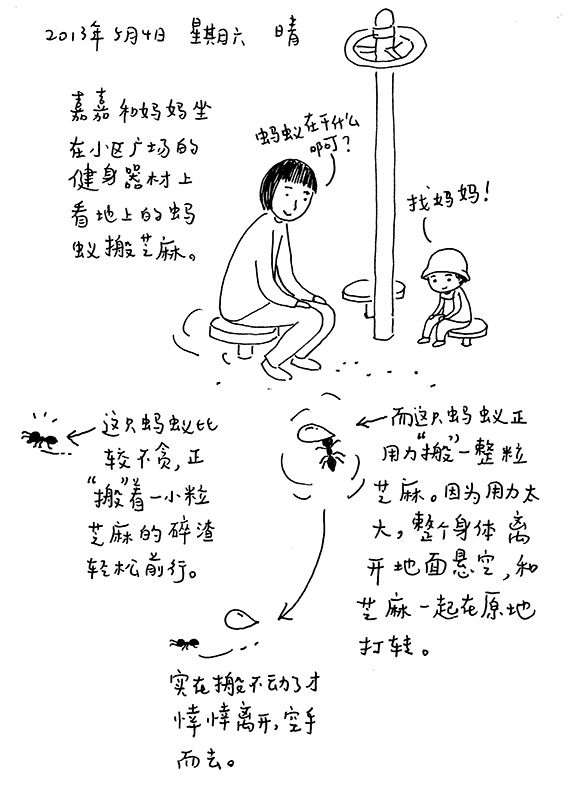 2013年5月4日 星期六 晴
嘉嘉和妈妈坐
在小区广场的
健身器材上
看地上的蚂
蚁搬芝麻。
蚂蚁在干什么
啊?
找妈妈!
这只蚂蚁比
较不贪,正
“搬”着一小粒
芝麻的碎渣
轻松前行。
而这只蚂蚁正
用力“搬”一整粒
芝麻。因为用力太
大,整个身体离
开地面悬空,和
芝麻一起在原地
打转。
实在搬不动了才
悻悻离开,空手
而去。